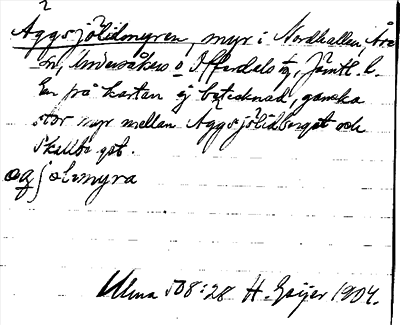 2
Aggsjölidmyren, myr i Nordhallen, Åre
sn, Undersåkers o Offerdals tg, Jämtl. l.
En på kartan ej betecknad, ganska
stor myr mellan Aggsjölidberget och
Skalberget.
Ulma 508:28 H. Geijer 1904.